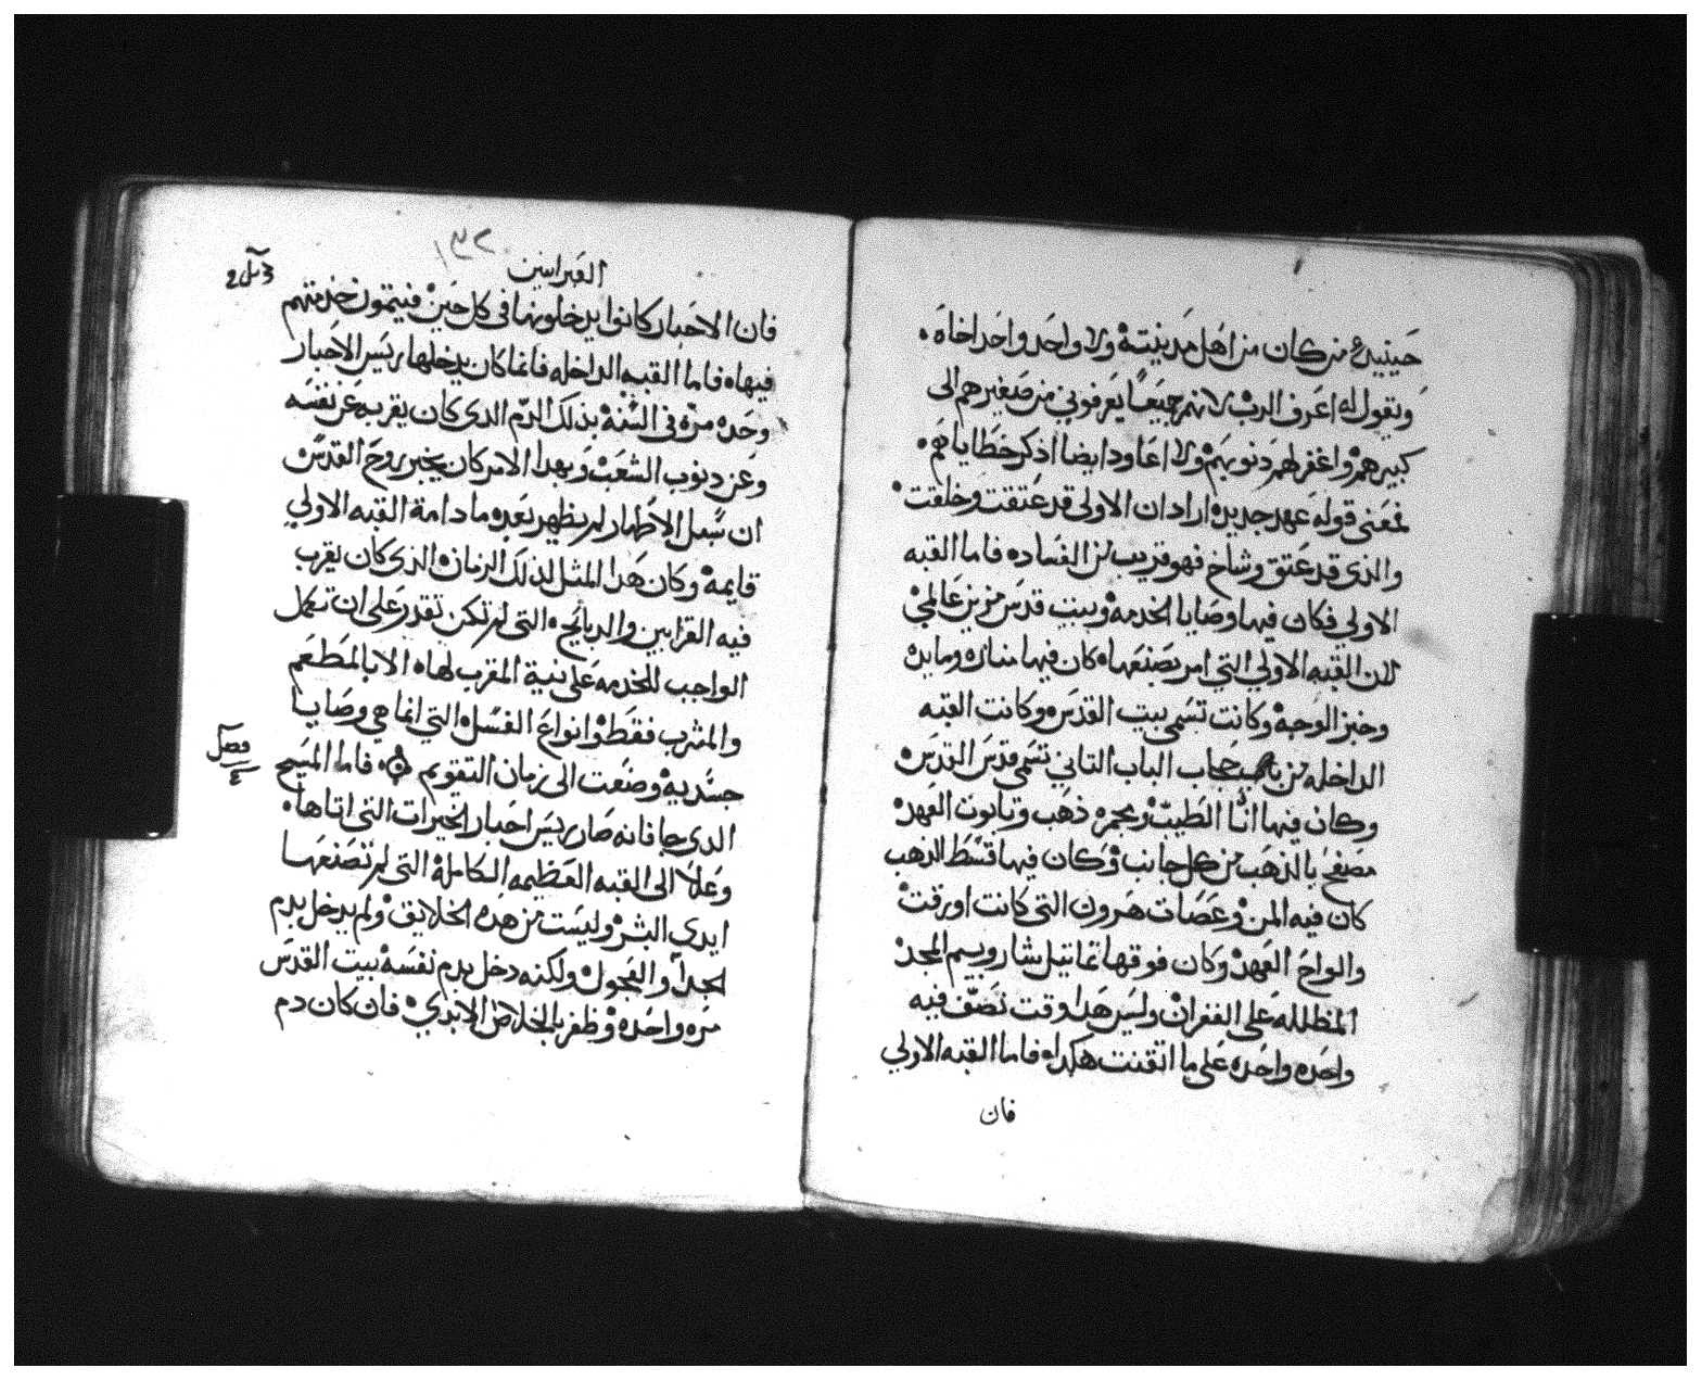 حينيد من كان من اهل مدينته ولا واحد واحد اخاه
ويقول له اعرف الرب لانهم جميعًا يعرفوني من صغيرهم الى
كبيرهم واغفر لهم دنوبهم ولا اعاود ايضا اذكر خطاياهم
فمعنى قوله عهد جديد اراد ان الاولى قد عتقت وخلقت
والذى قد عتق وشاخ فهو قريب من الفساد فاما القبه
الاولي فكان فيها وصايا الخدمه وبيت قدس مزين عالمي
لان القبه الاولي التي امر بصنعها كان فيها مناره ومايده
وخبز الوجه وكانت تسمى بيت القدس وكانت القبه
الداخله من حجاب الباب التاني تسمى قدس القدس
وكان فيها انا الطيب ومجمره ذهب وتابوت العهد
مصفح بالذهب من كل جانب وكان فيها قسط الذهب
كان فيه المن وعصات هرون التى كانت اورقت
والواح العهد وكان فوقها تماتيل شاروبيم المجد
المظلله على الغفران وليس هدا وقت نصف فيه
واحده واحده على ما اتقنت هكدا فاما القبه الاولي
فان
العبرانيين
١٣٢
فان الاحبار كانوا يدخلونها فى كل حين فيتمون خدمتهم
فيها فاما القبه الداخله فانما كان يدخلها ريس الاحبار
وحده مره فى السنه بذلك الدم الدى كان يقربه عن نفسه
وعن دنوب الشعب وبهدا الامر كان يخبر روح القدس
ان سبل الاطهار لم يظهر بعد ما دامة القبه الاولي
قايمه وكان هدا المثل لذلك الزمان الذى كان يقرب
فيه القرابين والدبايح التى لم تكن تقدر على ان تكمل
الواجب للخدمه على نية المقرب لها الا بالمطعم
والمشرب فقط وانواع الغسل التي انما هي وصايا
جسديه وضعت الى زمان التقويم فاما المسيح
فصل
٤
الدى جا فانه صار ريس احبار الخيرات التى اتاها
وعلا الى القبه العظيمه الكامله التى لم تصنعها
ايدى البشر وليست من هده الخلايق ولم يدخل بدم
الجدآ والعجول ولكنه دخل بدم نفسه بيت القدس
مره واحده وظفر بالخلاص الابدي فان كان دم